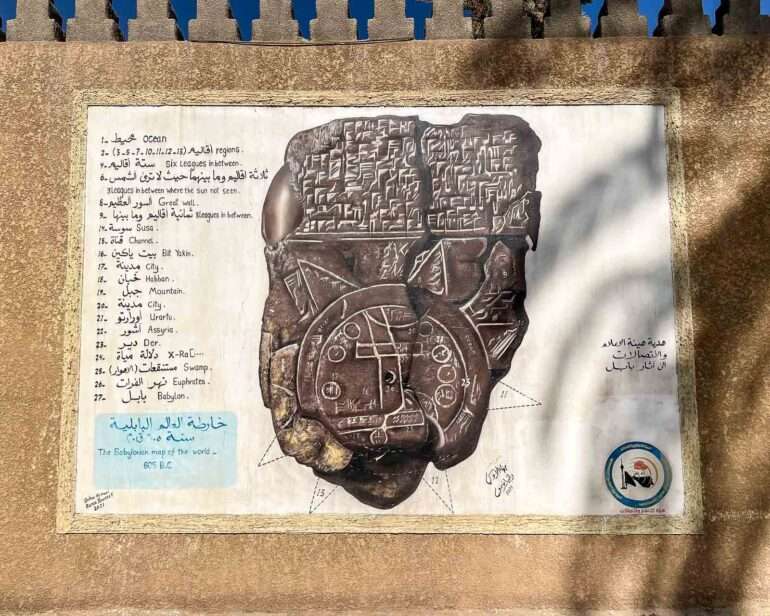 1- محيط Ocean
2- (3-5-7-10-11-12-13) اقاليم regions.
4- ستة اقاليم Six Leagues in between.
6- ثلاثة اقاليم وما بينهما حيث لا ترى الشمس
3leagues in between where the sun not seen.
8- السور العظيم Great wall.
9- ثمانية اقاليم وما بينها 8leagues in between.
14- سوسة Susa.
15- قناة Channel.
16- بيت ياكين Bit Yakin.
17- مدينة City.
18- خبان Habban.
19- جبل Mountain.
20- مدينة City.
21- اورارتو Urartu.
22- اشور Assyria.
23- دير Der.
24- دلالة مياة X-RaC...
25- مستنقعات (الاهوار) Swamp.
26- نهر الفرات Euphrates.
27- بابل Babylon.
خارطة العالم البابلية
سنة ٦٠٥ ق.م
The Babylonian map of the world -
605 B.C
2021
هدية هيئة الاعلام
والاتصالات
الى آثار بابل